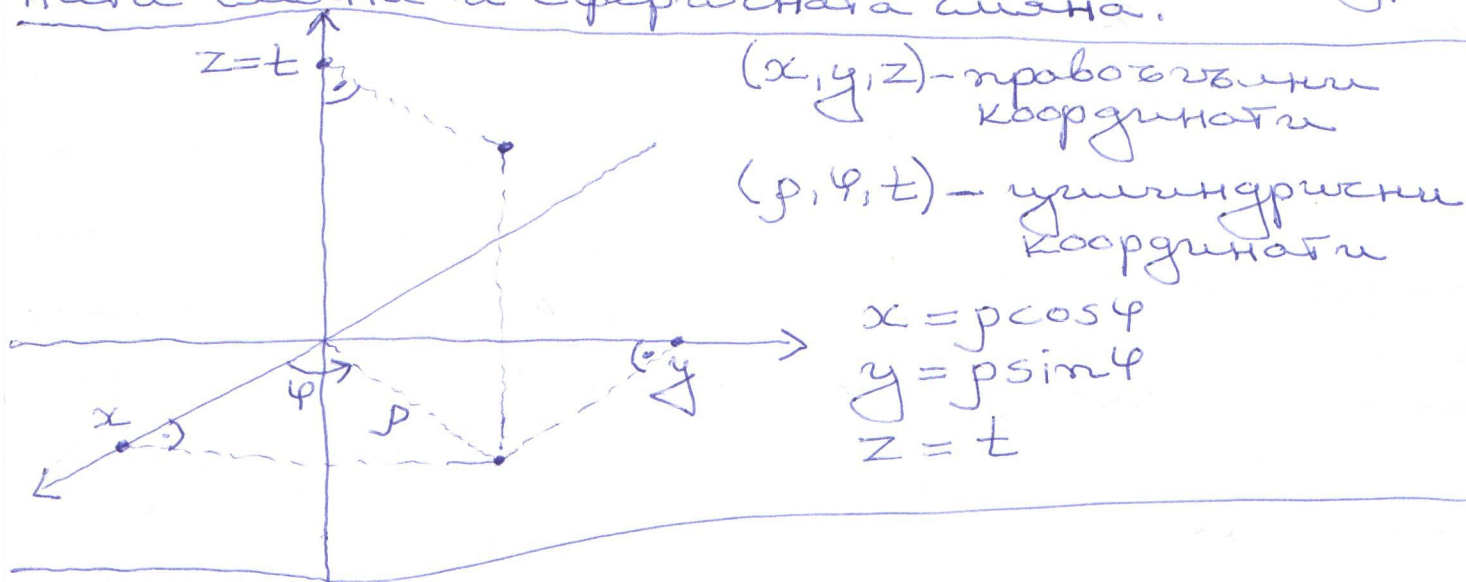 и сферичната смяна.
z=t
(x,y,z) – правоъгълни
координати
(ρ,φ,t) – цилиндрични
координати
x = ρcosφ
y = ρsinφ
z = t
φ
ρ
x
y